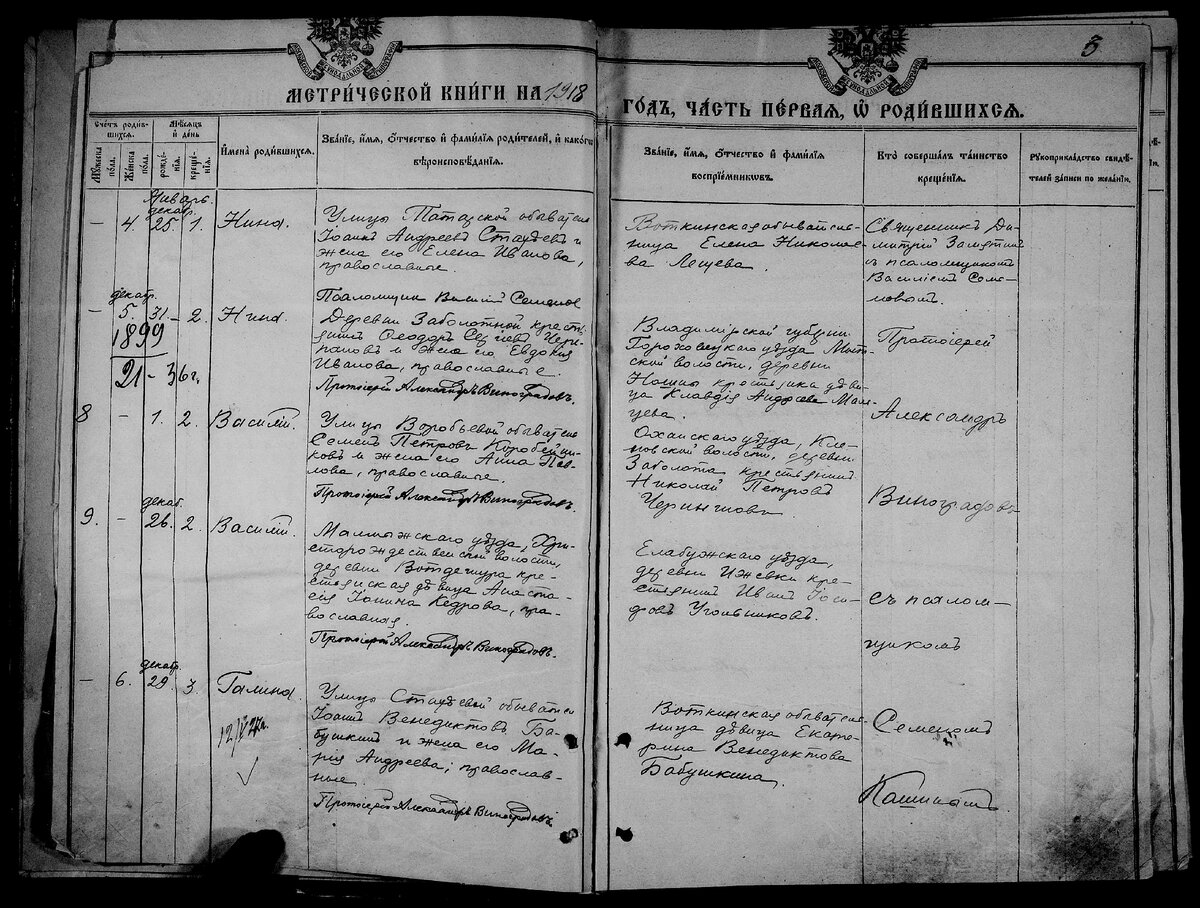 3
МЕТРИ́ЧЕСКОЙ КНИ́ГИ НА 1918 ГО́ДЪ, ЧА́СТЬ ПЕ́РВАЯ, Ѿ РОДИ́ВШИХСЯ.
Сче́тъ роди́в-
шихся.
Мѣ́сяцъ
и҆ де́нь
Мꙋ́жеска по́ла.
Же́нска по́ла.
рожде́-
нія.
креще́-
нія.
И҆мена̀ роди́вшихся.
Зва́ніе, и҆́мя, ѻ҆́тчество и҆ фами́лія роди́телей, и҆ како́гѡ
вѣроисповѣ́данія.
Зва́ніе, и҆́мя, ѻ҆́тчество и҆ фами́лія
воспріе́мникѡвъ.
Кто̀ соверша́лъ та́инство
креще́нія.
Рꙋкоприкла́дство свидѣ́-
телей за́писи по жела́нію.
Январь
декабр.
– 4. 25. 1. Нина.
Улицы Татарской обыватель
Іоаннъ Андреевъ Стаѣдевъ и
жена его Елена Иванова,
православные.
Псаломщикъ Василій Семенов
Воткинская обыватель-
ница Елена Николае-
ва Лещева.
Священникъ Ди-
митрій Замятинъ
съ псаломщикомъ
Василіемъ Семе-
новомъ.
декабр.
– 5. 31. – 2. Нина.
1899
21 – 36 г.
Деревни Заболотной кресть-
янинъ Ѳеодоръ Сергѣевъ
и жена его Евдокія
Иванова, православные.
Протоіерей Александръ Виноградовъ.
Владимірской губерніи
Гороховецкаго уѣзда, Мыт-
ской волости, деревни
крестьянка дѣви-
ца Клавдія Андреева
Протоіерей
8 – 1. 2. Василій.
Улицы Воробьевой обыватель
Семенъ Петровъ Коробейни-
ковъ и жена его Анна Пав-
лова, православные.
Протоіерей Александръ Виноградовъ.
Оханскаго уѣзда, Кле-
новской волости, деревни
Заболота крестьянинъ
Николай Петровъ
Александръ
Виноградовъ
декаб.
9. – 26. 2. Василій.
Малмыжскаго уѣзда, Хри-
сторождественской волости,
деревни кре-
стьянская дѣвица Анаста-
сія Іонина Кедрова, пра-
вославная.
Протоіерей Александръ Виноградовъ.
Елабужскаго уѣзда,
деревни Ижевки кре-
стьянинъ Иванъ Іоси-
фовъ Угольниковъ.
съ псалом-
щикомъ
декабр.
– 6. 29. 3. Галина.
Улицы Стаѣдевой обыватель
Іоаннъ Венедиктовъ Ба-
бушкинъ и жена его Ма-
рія Андреева, православ-
ные.
Протоіерей Александръ Виноградовъ.
Воткинская обыватель-
ница дѣвица Екате-
рина Венедиктова
Бабушкина.
Семеномъ